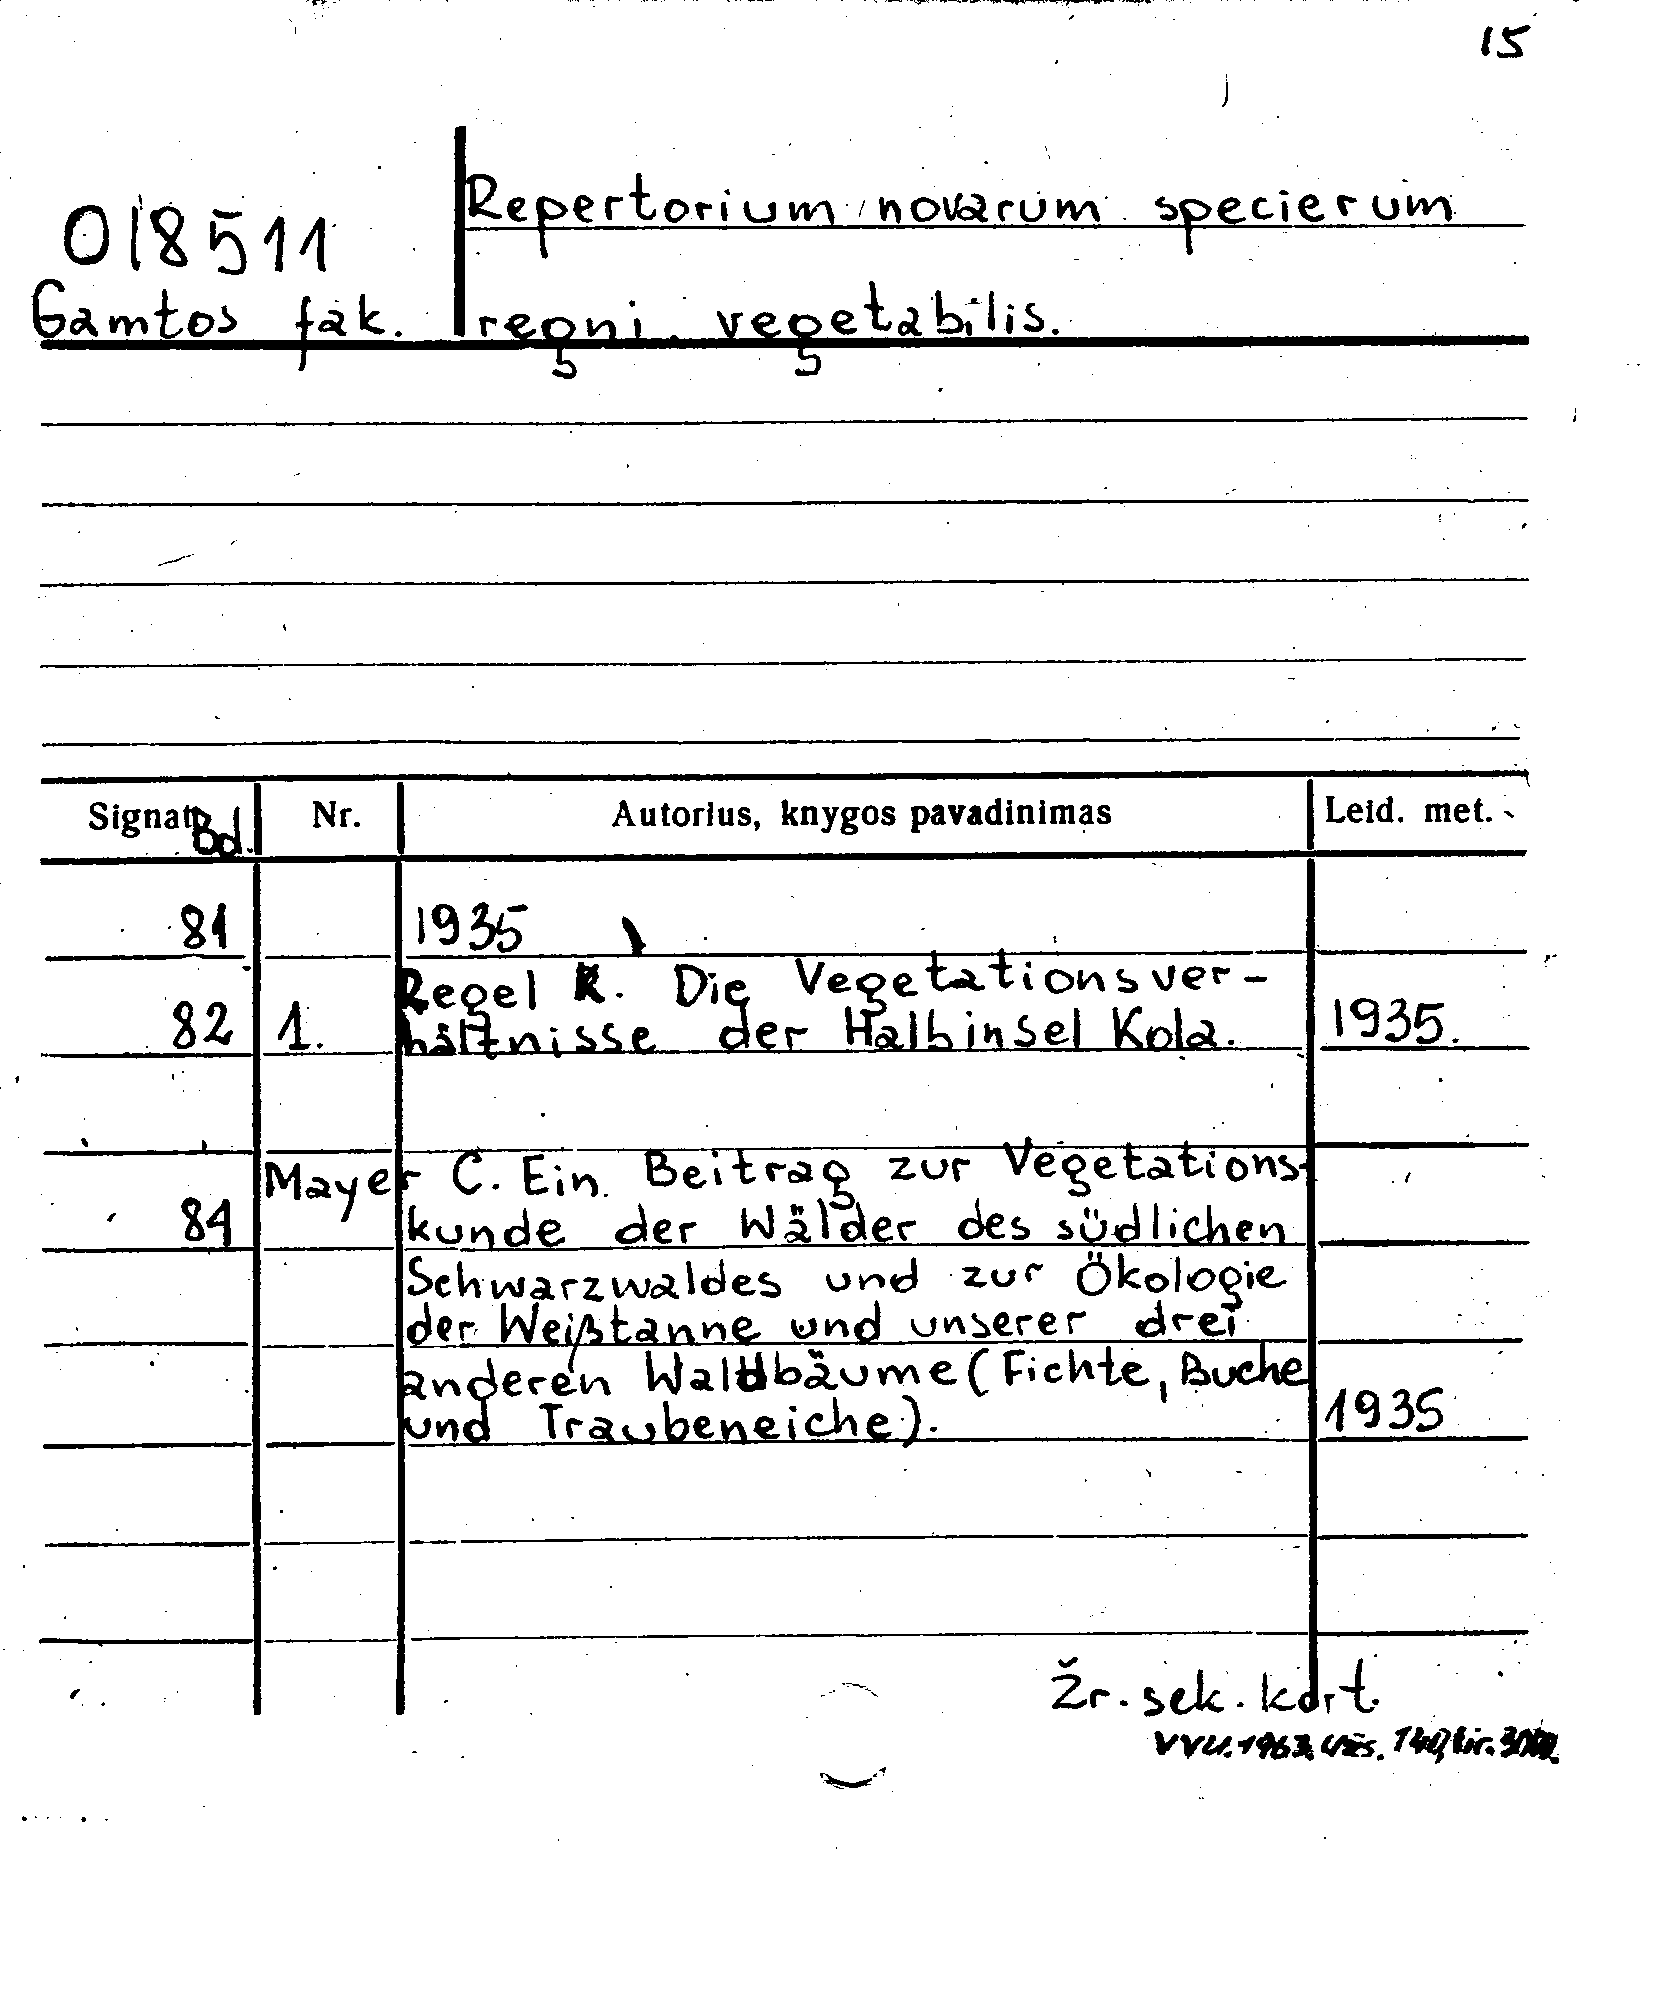 15
Repertorium novarum specierum
018511
Gamtos fak. regni vegetabilis.
Signat. Bd. Nr. Autorius, knygos pavadinimas Leid. met.
81 1935
Regel K. Die Vegetationsver-
82 1. hältnisse der Halbinsel Kola. 1935.
Mayer C. Ein Beitrag zur Vegetations-
84 kunde der Wälder des südlichen
Schwarzwaldes und zur Ökologie
der Weißtanne und unserer drei
anderen Waldbäume (Fichte, Buche
und Traubeneiche). 1935
Žr. sek. kort.
VVU. 1963. Užs. 140, tir.